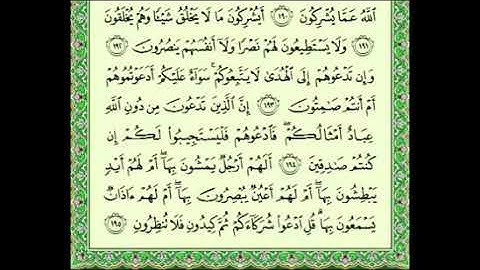 ٱللَّهُ عَمَّا يُشْرِكُونَ ١٩٠ أَيُشْرِكُونَ مَا لَا يَخْلُقُ شَيْـًٔا وَهُمْ يُخْلَقُونَ
١٩١ وَلَا يَسْتَطِيعُونَ لَهُمْ نَصْرًا وَلَآ أَنفُسَهُمْ يَنصُرُونَ ١٩٢
وَإِن تَدْعُوهُمْ إِلَى ٱلْهُدَىٰ لَا يَتَّبِعُوكُمْ ۚ سَوَآءٌ عَلَيْكُمْ أَدَعَوْتُمُوهُمْ
أَمْ أَنتُمْ صَـٰمِتُونَ ١٩٣ إِنَّ ٱلَّذِينَ تَدْعُونَ مِن دُونِ ٱللَّهِ
عِبَادٌ أَمْثَالُكُمْ ۖ فَٱدْعُوهُمْ فَلْيَسْتَجِيبُوا۟ لَكُمْ إِن
كُنتُمْ صَـٰدِقِينَ ١٩٤ أَلَهُمْ أَرْجُلٌ يَمْشُونَ بِهَآ ۖ أَمْ لَهُمْ أَيْدٍ
يَبْطِشُونَ بِهَآ ۖ أَمْ لَهُمْ أَعْيُنٌ يُبْصِرُونَ بِهَآ ۖ أَمْ لَهُمْ ءَاذَانٌ
يَسْمَعُونَ بِهَا ۗ قُلِ ٱدْعُوا۟ شُرَكَآءَكُمْ ثُمَّ كِيدُونِ فَلَا تُنظِرُونِ ١٩٥